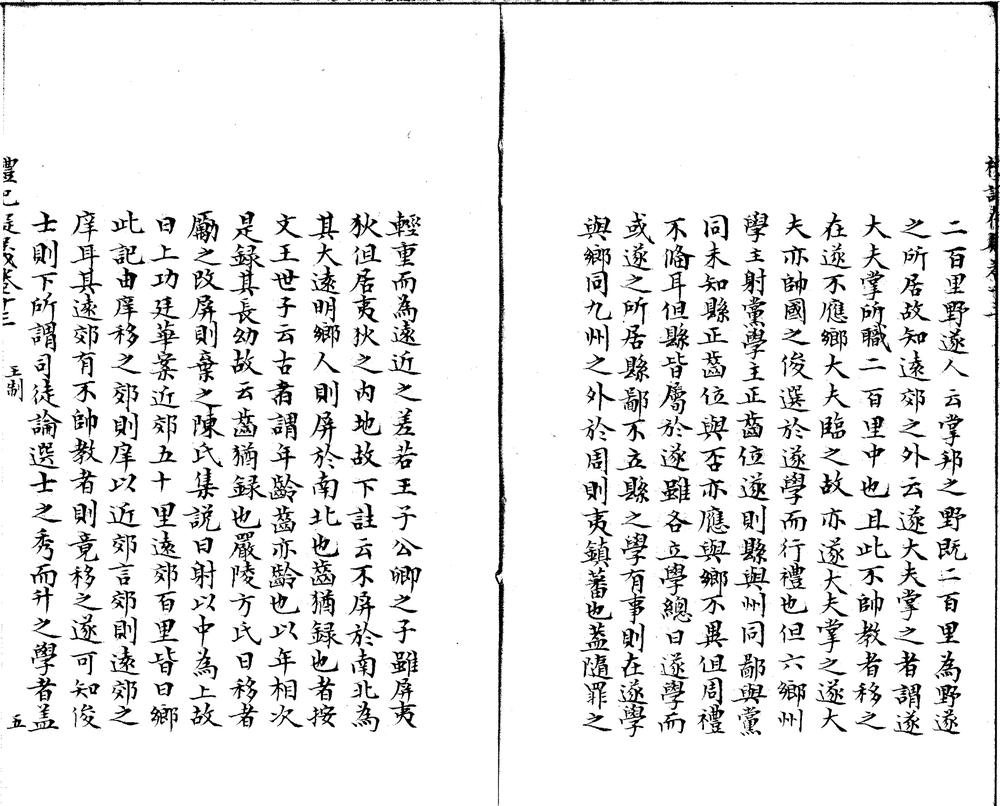 二百里野遂人云掌邦之野既二百里為野遂
之所居故知遠郊之外云遂大夫掌之者謂遂
大夫掌所職二百里中也且此不帥教者移之
在遂不應鄉大夫臨之故亦遂大夫掌之遂大
夫亦帥國之俊選於遂學而行禮也但六鄉州
學主射黨學主正齒位遂則縣與州同鄙與黨
同未知縣正齒位與否亦應與鄉不異但周禮
不偹耳但縣皆屬於遂雖各立學總曰遂學而
或遂之所居縣鄙不立縣之學有事則在遂學
與鄉同九州之外於周則夷鎮蕃也葢隨罪之
輕重而為遠近之差若王子公卿之子雖屏夷
狄但居夷狄之內地故下註云不屏於南北為
其大遠明鄉人則屏於南北也齒猶録也者按
文王世子云古者謂年齡齒亦齡也以年相次
是録其長幼故云齒猶録也嚴陵方氏曰移者
勵之改屏則棄之陳氏集說曰射以中為上故
曰上功廷華案近郊五十里遠郊百里皆曰鄉
此記由庠移之郊則庠以近郊言郊則遠郊之
庠耳其遠郊有不帥教者則竟移之遂可知俊
士則下所謂司徒論選士之秀而升之學者盖
禮記疑義卷十三
王制
五